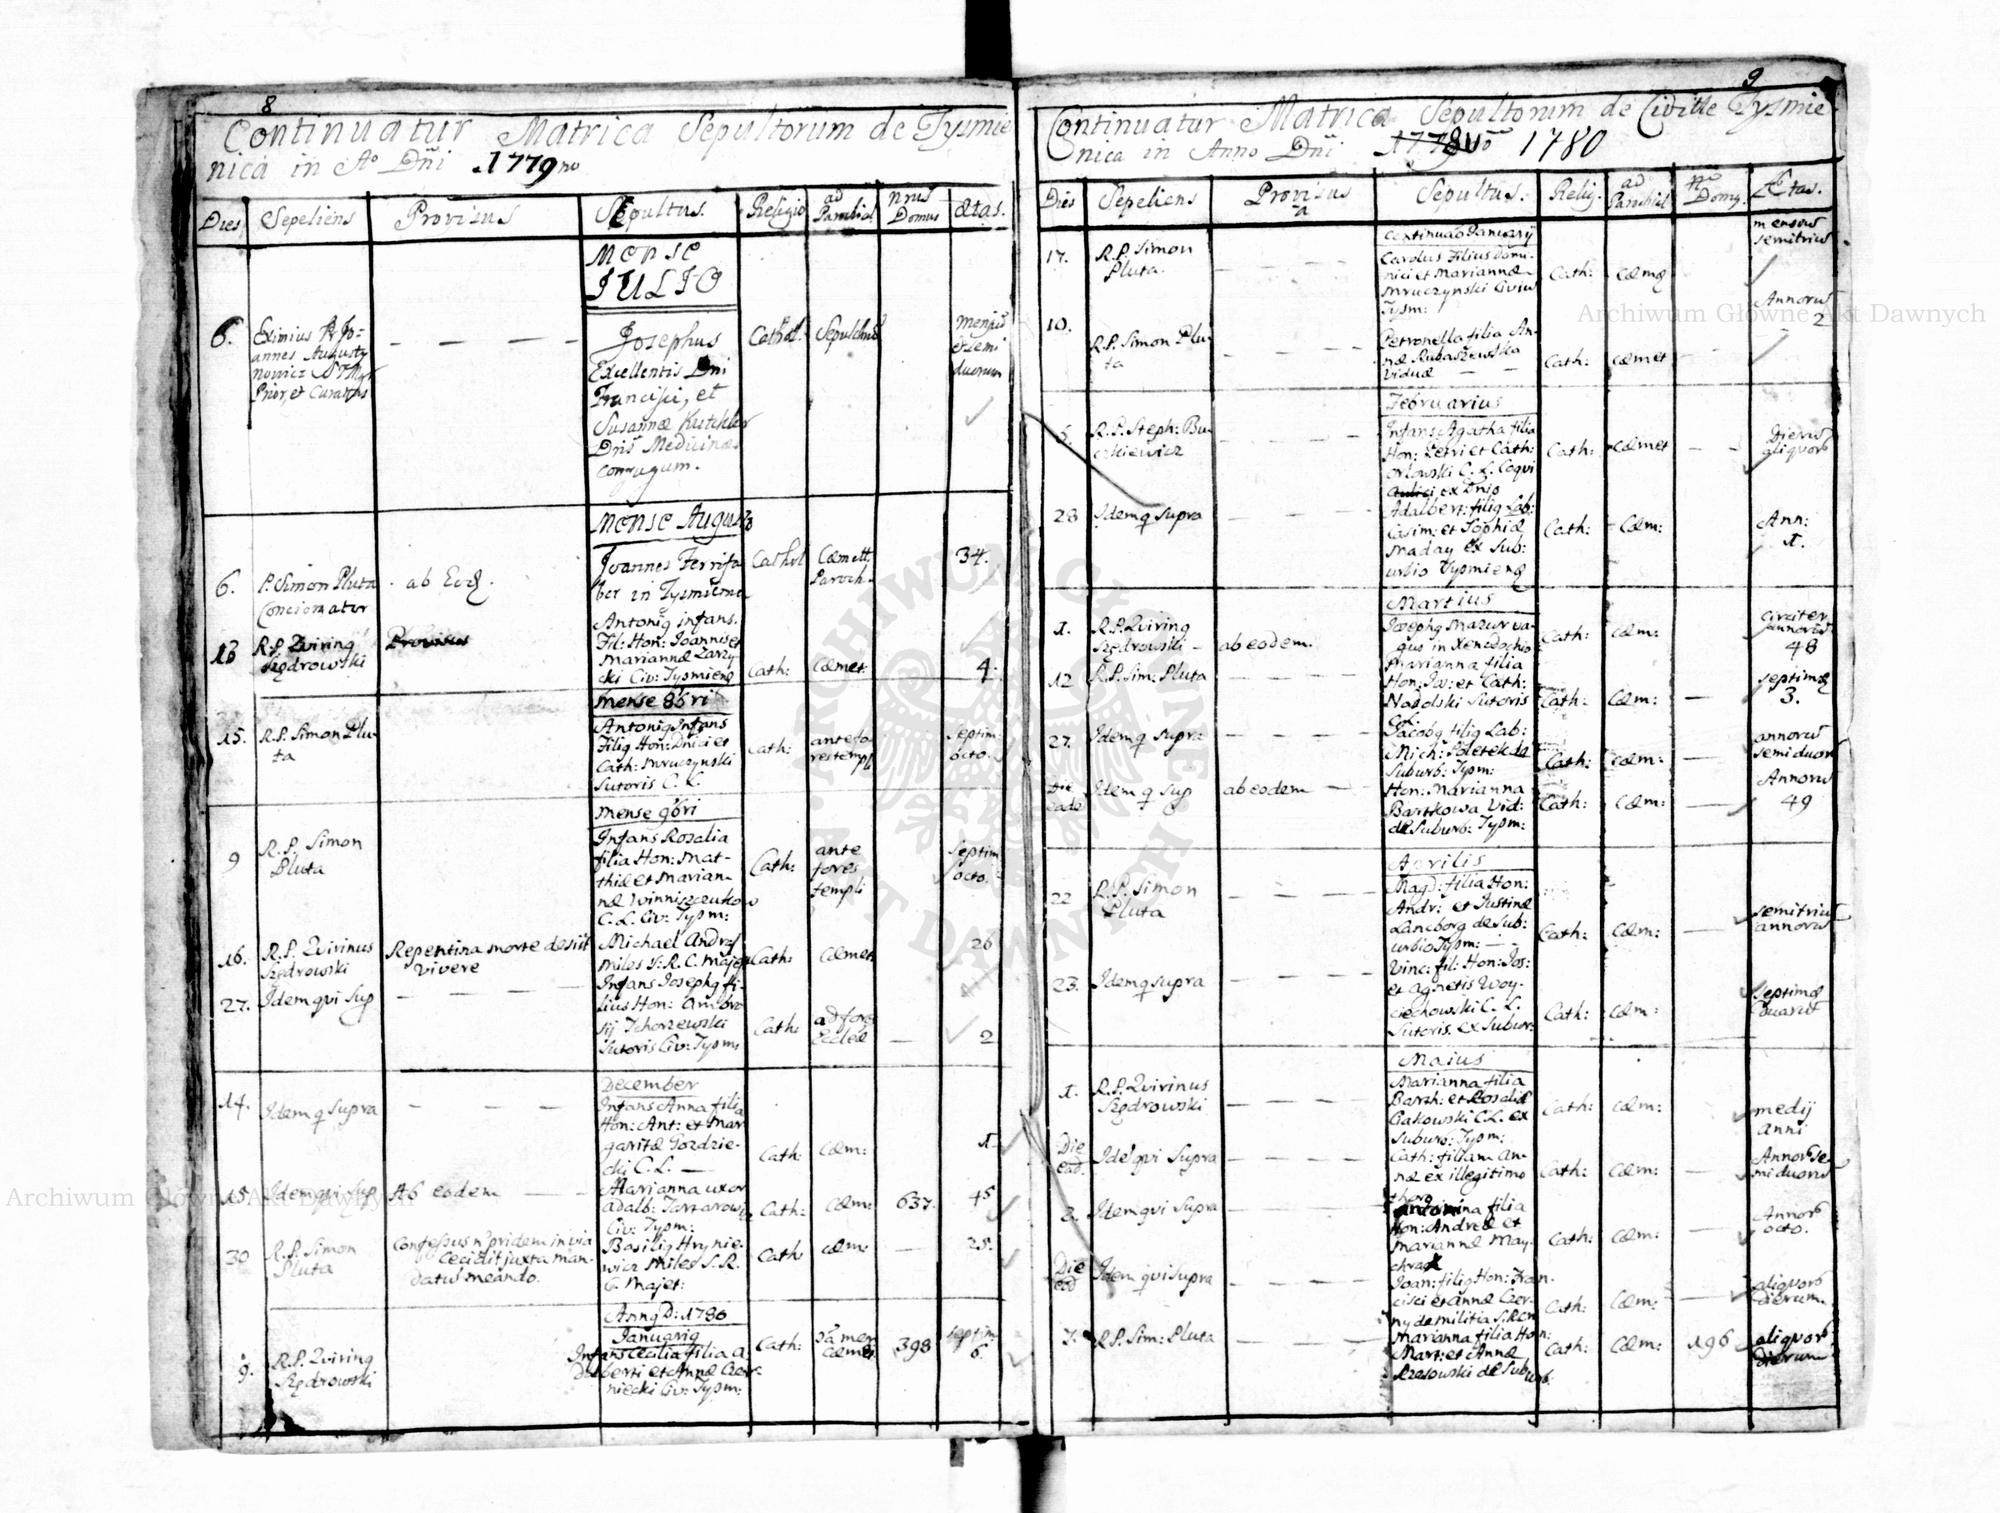 8
Continuatur Matrica Sepultorum de Tysmie
nica in Ao Dñi 1779no
Dies Sepeliens Provisus Sepultus. Religio ad Parochial nrus Domus Ætas.
Mense
JULIO
6. Eximius P. Jo=
annes Augusty
nowicz
Prior, et Curatus
Josephus
Excellentis Dni
Francisci, et
Susannæ
Dris Medicinæ
conjugum.
Cathol. Sepulchro
Mensiu
et semi
duorum
Mense Augusto
6. P. Simon Pluta
Concionator
ab Eod.
Joannes Ferrifa
ber in Tysmieni
Cathol
Cæmett.
Paroch.
34.
13 R.P. Quiring
Szędrowski
Provisus
Antonig infans.
Fil: Hon: Joannis et
Mariannæ Zarzy
cki Civ: Tysmieng
Cath: Cæmet. 4.
Mense 8bri
15. R.P. Simon Plu-
ta
Antonig Infans
Filig Hon: Dnici et
Cath: Mruczynski
Sutoris C. L.
Cath:
ante fo
res templ
septim:
octo.
Mense 9bri
9 R.P. Simon
Pluta
Infans Rosalia
filia Hon: Mat-
thiæ et Marian-
næ Winniszczukow
C.L. Civ: Tysm:
Cath:
ante
fores
templi
septim
octo.
16. R.P. Quirinus
Szędrowski
Repentina morte desiit
vivere
Michael Andrys
Miles S.R.C. Majest
Cath: Cæmet. 26
27. Idem qui sup
Infans Josephg fi-
lius Hon: Ambro
sij Tchorzewski
Sutoris Civ: Tysm:
Cath:
ad fores
Eccleæ
2
December
14. Idem q supra
Infans Anna filia
Hon: Ant: et Mar
garitæ Gozdzie-
cki C.L.
Cath: Cæm: 1.
15. Idem qui sup Ab eodem
Marianna uxor
Adalb: Tartarowicz
Civ: Tysm:
Cath: Cæm: 637. 45
30 R.P. Simon
Pluta
Confessus n pridem in via
cecidit juxta man-
datu meando.
Basilig Hrynie-
wicz Miles S.R.
C. Majet:
Cath: cæm: 25.
Anng D: 1780
Januarig
9. R.P. Quiring
Szędrowski
Infans Cecilia filia A
dalberti et Annæ Czer-
niecki Civ: Tysm:
Cath: cæmet. 398
septim
6.
9
Continuatur Matrica Sepultorum de Civitte Tysmie
nica in Anno Dñi 1780
Dies Sepeliens Provisus Sepultus. Relig. ad Parochial Nro Domg. Ætas.
Continuao January
17. R.P. Simon
Pluta.
Carolus Filius Domi-
nici et Mariannæ
Mruczynski Civiu
Tysm:
Cath: Cæmg
mensiu
semitriu
10. R.P. Simon Plu-
ta
Petronella filia An-
næ Rubaszewska
viduæ
Cath: cæmet
Annoru
2
Februarius
5. R.P. Steph: Bu-
czkiewicz
Infans Agatha filia
Hon: Petri et Cath:
Orlowski C. L. Coqui
Aulici ex Dnio
Cath: cæmet
Dieru
aliquot
28 Idem q supra
Adalbert: filig Lab:
Casim: et Sophiæ
Maday ex Sub:
urbio Tysmieng
Cath: Cæm:
Ann:
1.
Martius
1. R.P. Quiring
Szędrowski ab eodem.
Josephg Mazur va-
gus in Xenodochio
Cath: cæm:
circiter
annoru
48
12 R.P. Sim: Pluta
Marianna filia
Hon: Jo: et Cath:
Nadolski Sutoris
Cath: cæm:
septimg
3.
27. Idem q supra
Jacobg filig Lab:
Mich:
Suburb: Tysm:
Cath: cæm:
annoru
semi duor
Die eade Idem q sup ab eodem
Hon: Marianna
Bartkowa Vid:
de Suburb: Tysm:
Cath: Cæm:
Annoru
49
Aprilis
22 R.P. Simon
Pluta
Magd: filia Hon:
Andr: et Justinæ
Lancborg de Sub:
urbio Tysm:
Cath: cæm:
semitriu
annoru
23. Idem q supra
Vinc: fil: Hon: Jos:
et Agnetis Woy-
ciechowski C. L.
Sutoris. ex Subur:
Cath: cæm:
septimg
duaru
Maius
1. R.P. Quirinus
Szędrowski
Marianna filia
Barth: et Rosaliæ
Gakowski C.L. ex
Suburb: Tysm:
Cath: cæm:
medij
anni
Die ead. Idē qui supra
Cath: filiam An-
næ ex illegitimo
thoro
Cath: cæm:
Annor se
mi duoru
2. Idem qui supra
Antonina filia
Hon: Andreæ et
Mariannæ May-
chrak
Cath: cæm:
Annor
octo.
Die ead Idem qui supra
Joan: filig Hon: Fran-
cisci et Annæ Czer-
ny de militia S. R. C. M
Cath: Cæm:
aliquot
dierum.
7. R.P. Sim: Pluta
Marianna filia Hon:
Mart: et Annæ
Rzasowski de Suburb:
Cath: Cæm: 196
aliquot
dierum
Archiwum Główne Akt Dawnych
Archiwum Główne Akt Dawnych
ARCHIWUM GŁÓWNE AKT DAWNYCH